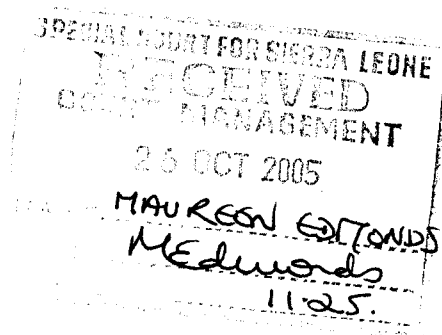 SPECIAL COURT FOR SIERRA LEONE
RECEIVED
COURT MANAGEMENT
26 OCT 2005
MAUREEN EDMONDS
MEdmonds
11.25.